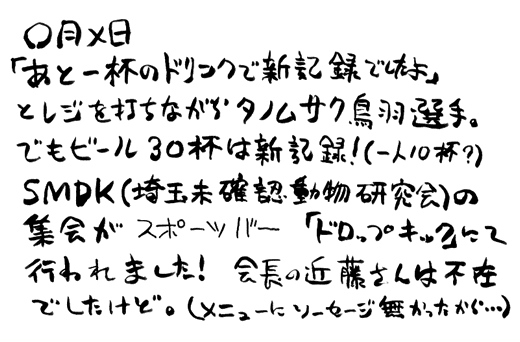 〇月×日
「あと一杯のドリンクで新記録でしたよ」
とレジを打ちながらタノムサク鳥羽選手。
でもビール30杯は新記録!(一人10杯?)
SMDK(埼玉未確認動物研究会)の
集会がスポーツバー「ドロップキック」にて
行われました! 会長の近藤さんは不在
でしたけど。(メニューにソーセージ無かったから…)